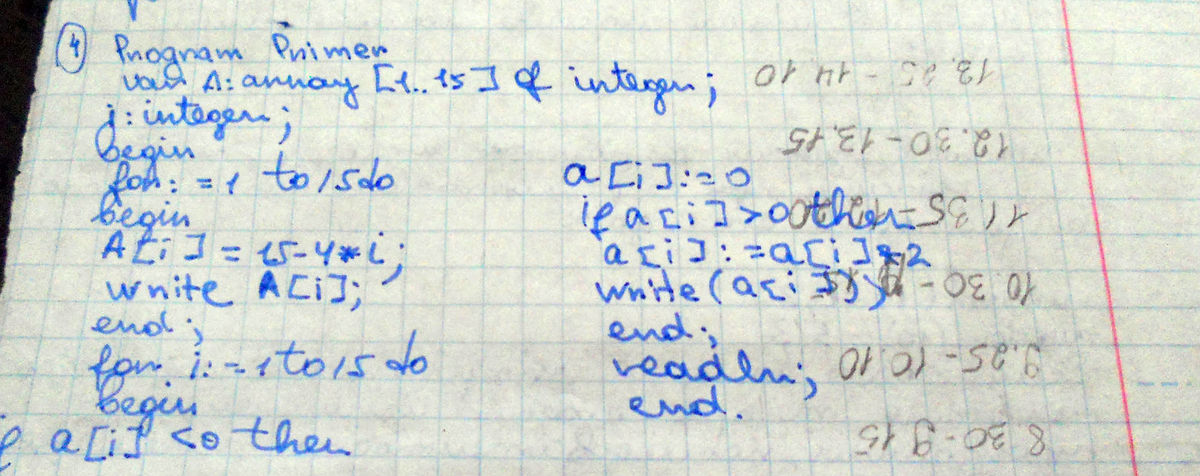 4 Program Primer
var A: array [1..15] of integer;
i: integer;
begin
for: = 1 to 15 do
begin
A[i] = 15-4*i;
write A[i];
end;
for i: = 1 to 15 do
begin
a[i] <0 then
a[i]:=0
if a[i]>0 then
a[i]:=a[i]*2
write(a[i]);
end;
readln;
end.
8 30-9 15
9.25-10.10
10.30-
11 35-
12.30-13.15
13.25-14 10